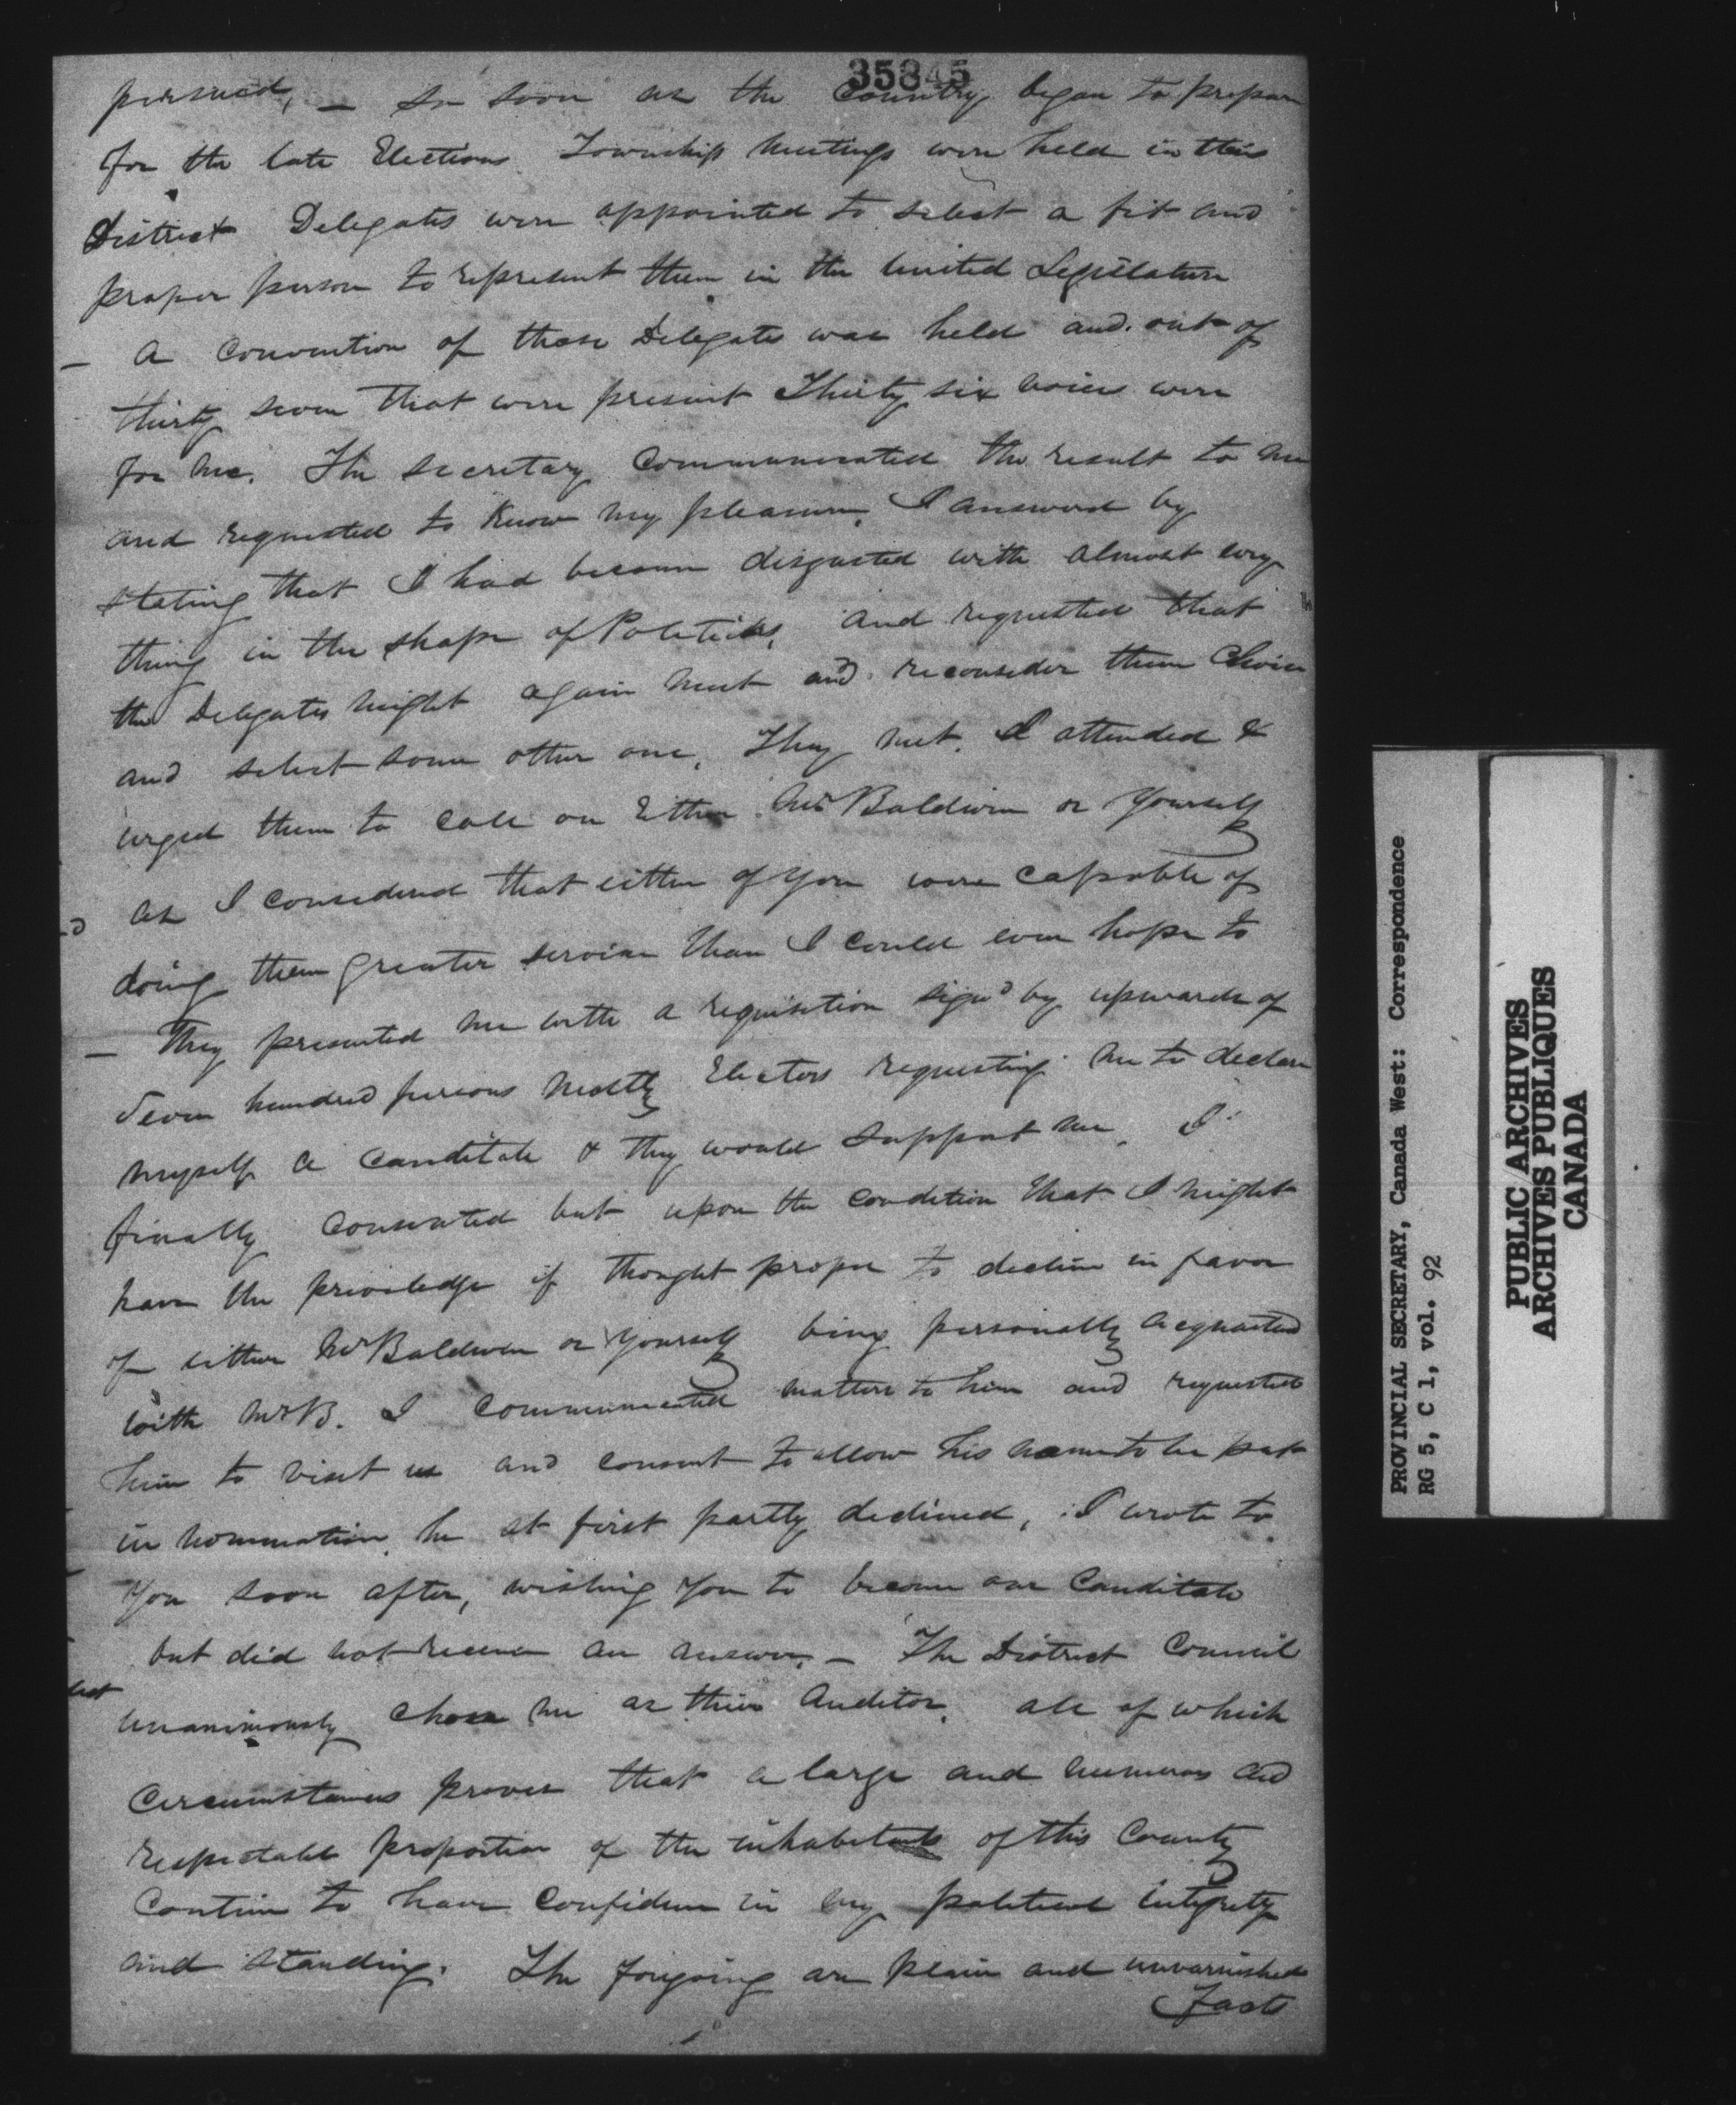 35845
pursued, — So soon as the Country began to prepare
for the late Elections Township Meetings were held in this
District Delegates were appointed to select a fit and
proper person to represent them in the United Legislature
— A Convention of those Delegates was held and out of
thirty seven that were present Thirty six voices were
for me. The Secretary Communicated the result to me
and requested to Know my pleasure, I answerd by
stating that I had become disgusted with almost every
thing in the shape of Politicks, and requested that
the Delegates might again meet and reconsider their Choice
and select some other one, They met. I attended &
urged them to call on Either Mr Baldwin or Yourself
as I considered that either of you were capable of
doing them greater service than I could ever hope to
— They presented me with a requisition sign'd by upwards of
Seven hundred persons mostly Electors requesting me to declare
myself a Canditate & they would support me, I
finally consented but upon the condition that I might
have the priviledge if thought proper to decline in favor
of either Mr Baldwin or Yourself being personally acquainted
with Mr B. I communicated matters to him and requested
him to visit us and consent to allow his name to be put
in nomination, he at first partly declined, I wrote to
You soon after, wishing You to become our Canditate
but did not receive an answer, — The District Council
unanimously chose me as their Auditor, all of which
Circumstances proves that a large and numerous and
respectable proportion of the inhabitants of this County
Continue to have Confidence in my political integrity
and standing. The forgoing are plain and unvarnished
Facts
PROVINCIAL SECRETARY, Canada West: Correspondence
RG 5, C 1, vol. 92
PUBLIC ARCHIVES
ARCHIVES PUBLIQUES
CANADA